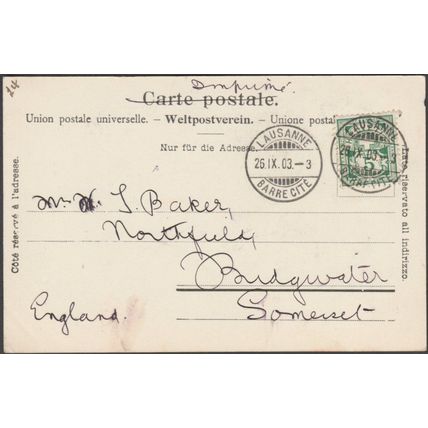 14
Imprimé.
Carte postale.
Union postale universelle. – Weltpostverein. – Unione postale
Nur für die Adresse.
LAUSANNE
26.IX.03.–3
BARRE CITÉ
LAUSANNE
26.IX.03.
5
Côté réservé à l'adresse.
Lato riservato all' indirizzo.
Mr. W. S. Baker,
Northfield,
Bridgwater
Somerset.
England.